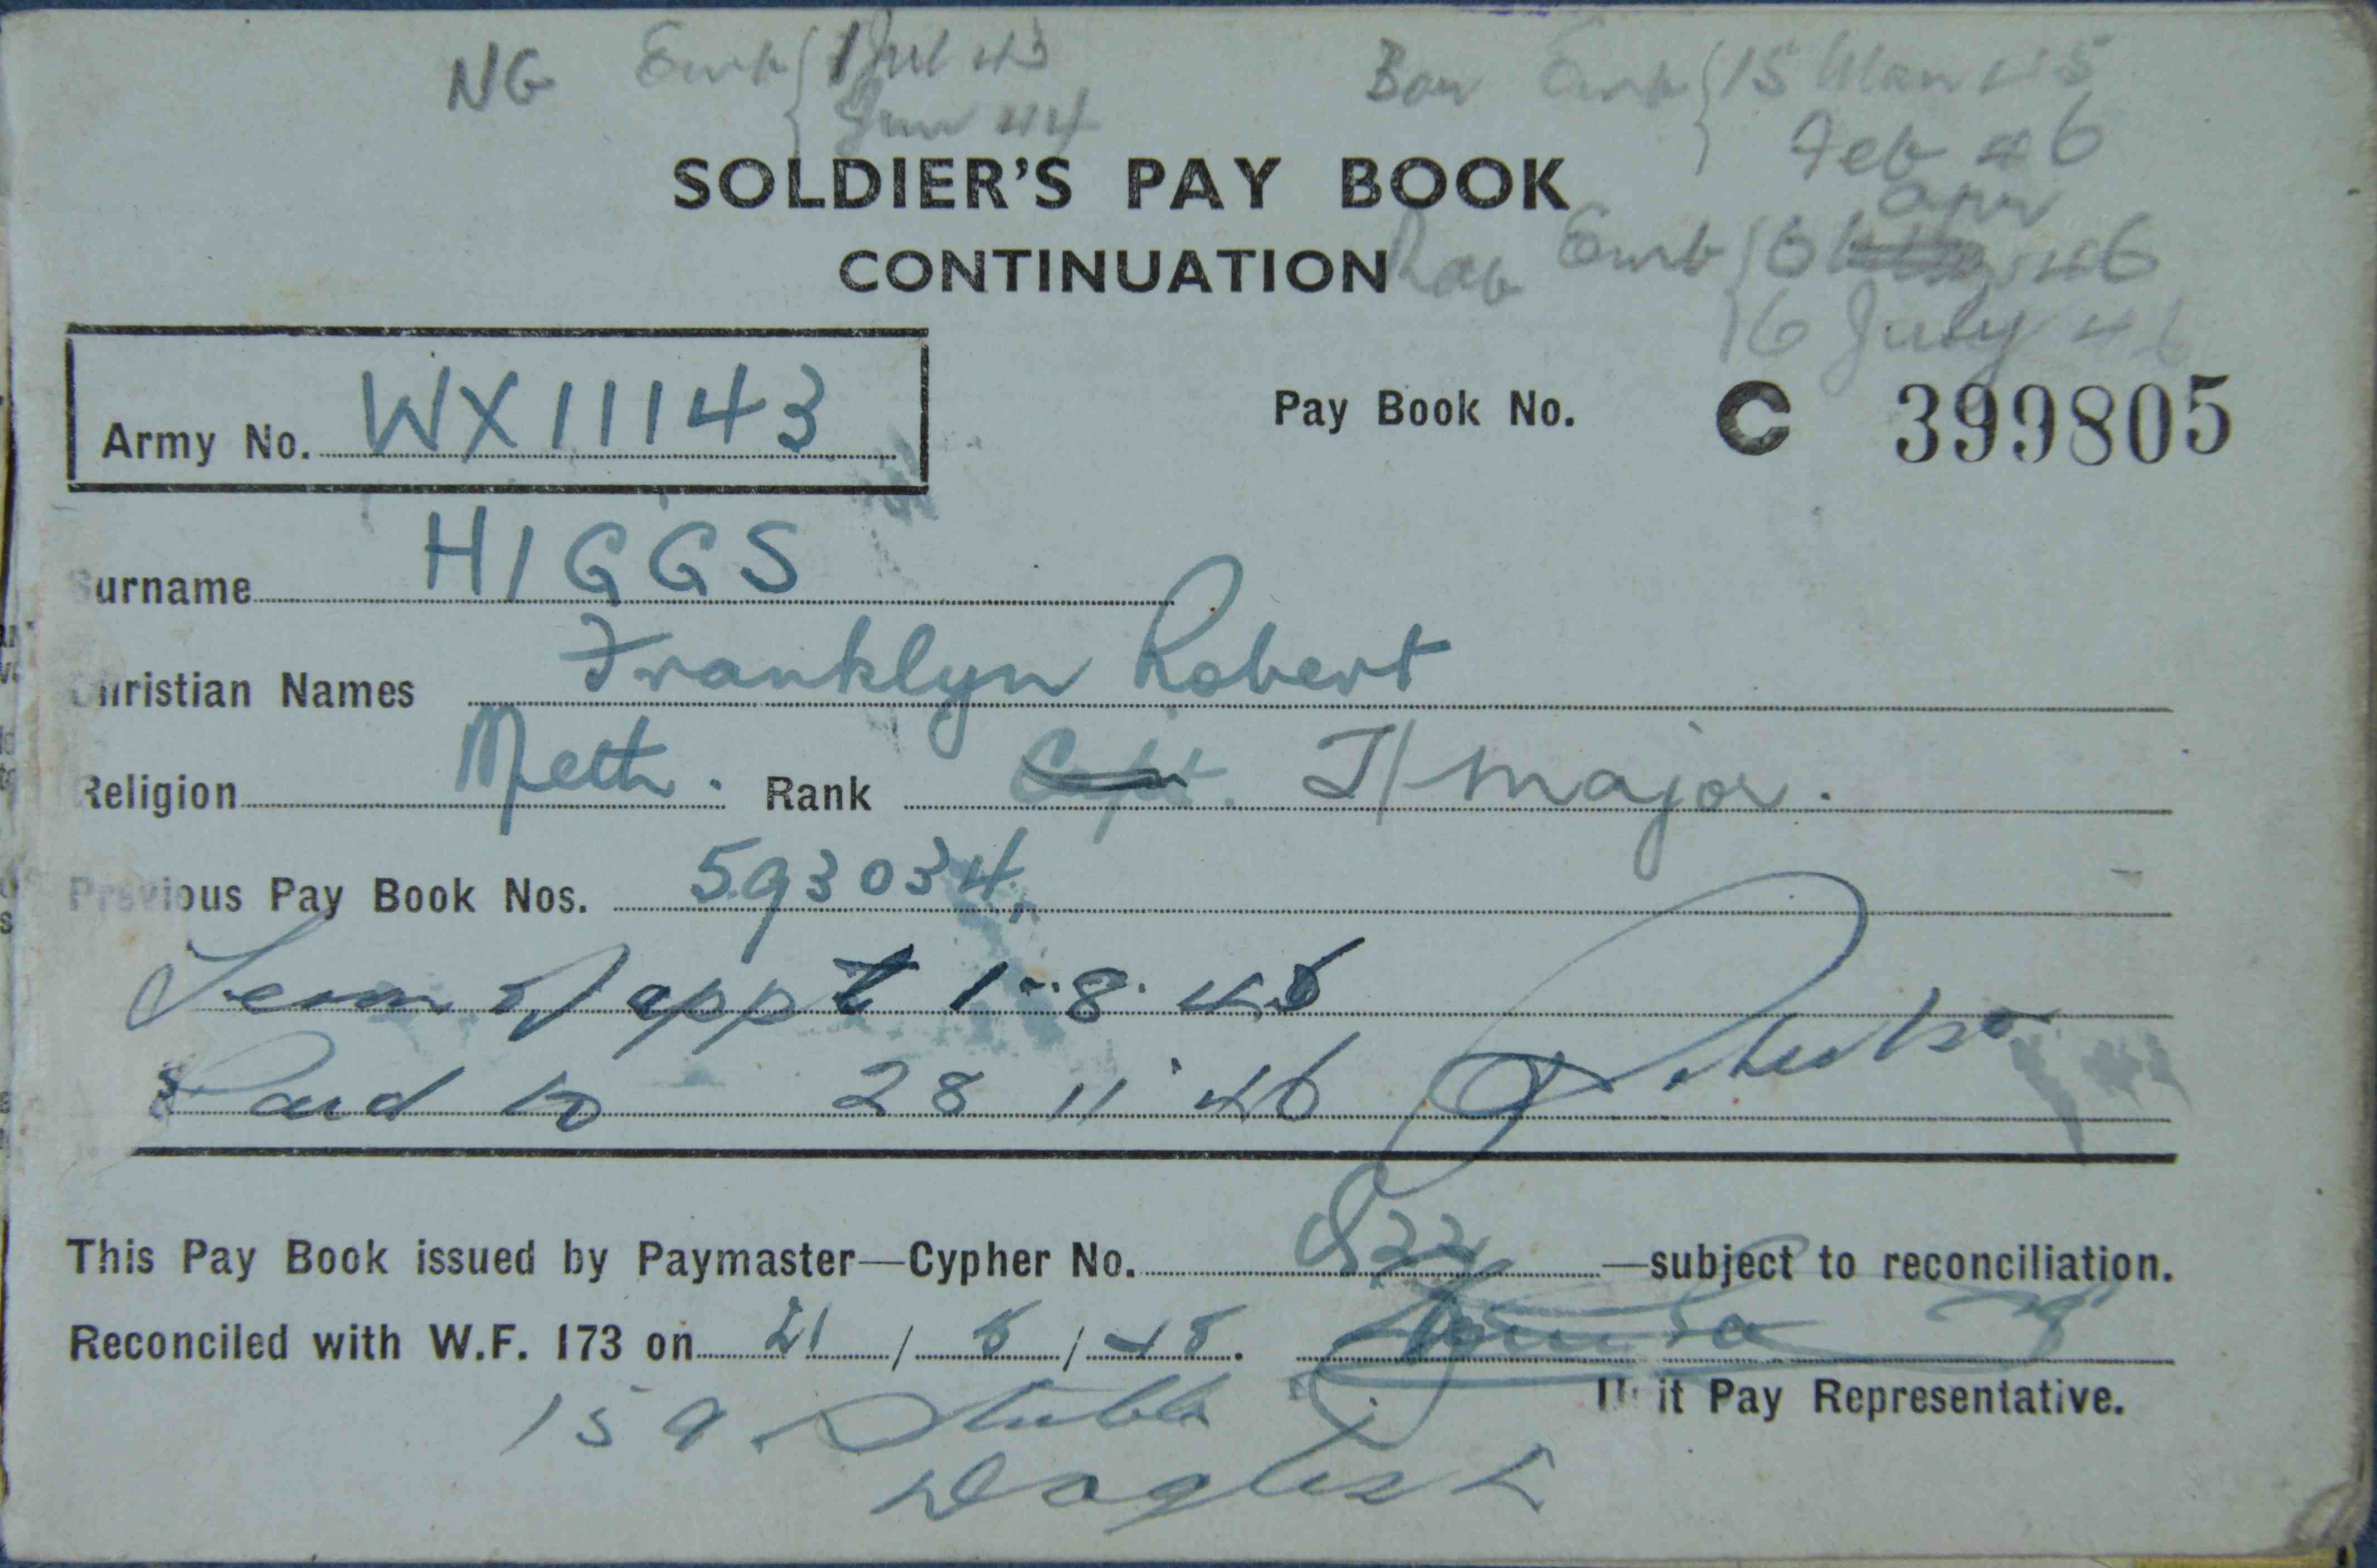 NG Emb { 1 Jul 43
Jan 44
Bou Emb { 15 Mar 45
Feb 46
SOLDIER'S PAY BOOK
apr
CONTINUATION
Rab Emb { 6 46
16 July 46
Army No. WX11143
Pay Book No. C 399805
Surname HIGGS
Christian Names Franklyn Robert
Religion Meth. Rank Capt. T/Major.
Previous Pay Book Nos. 593034,
Term of appt 1.8.46
Paid to 28 11 46
This Pay Book issued by Paymaster—Cypher No. 822 —subject to reconciliation.
Reconciled with W.F. 173 on 21 / 5 / 45.
Unit Pay Representative.
159 Stubbs
Daglish